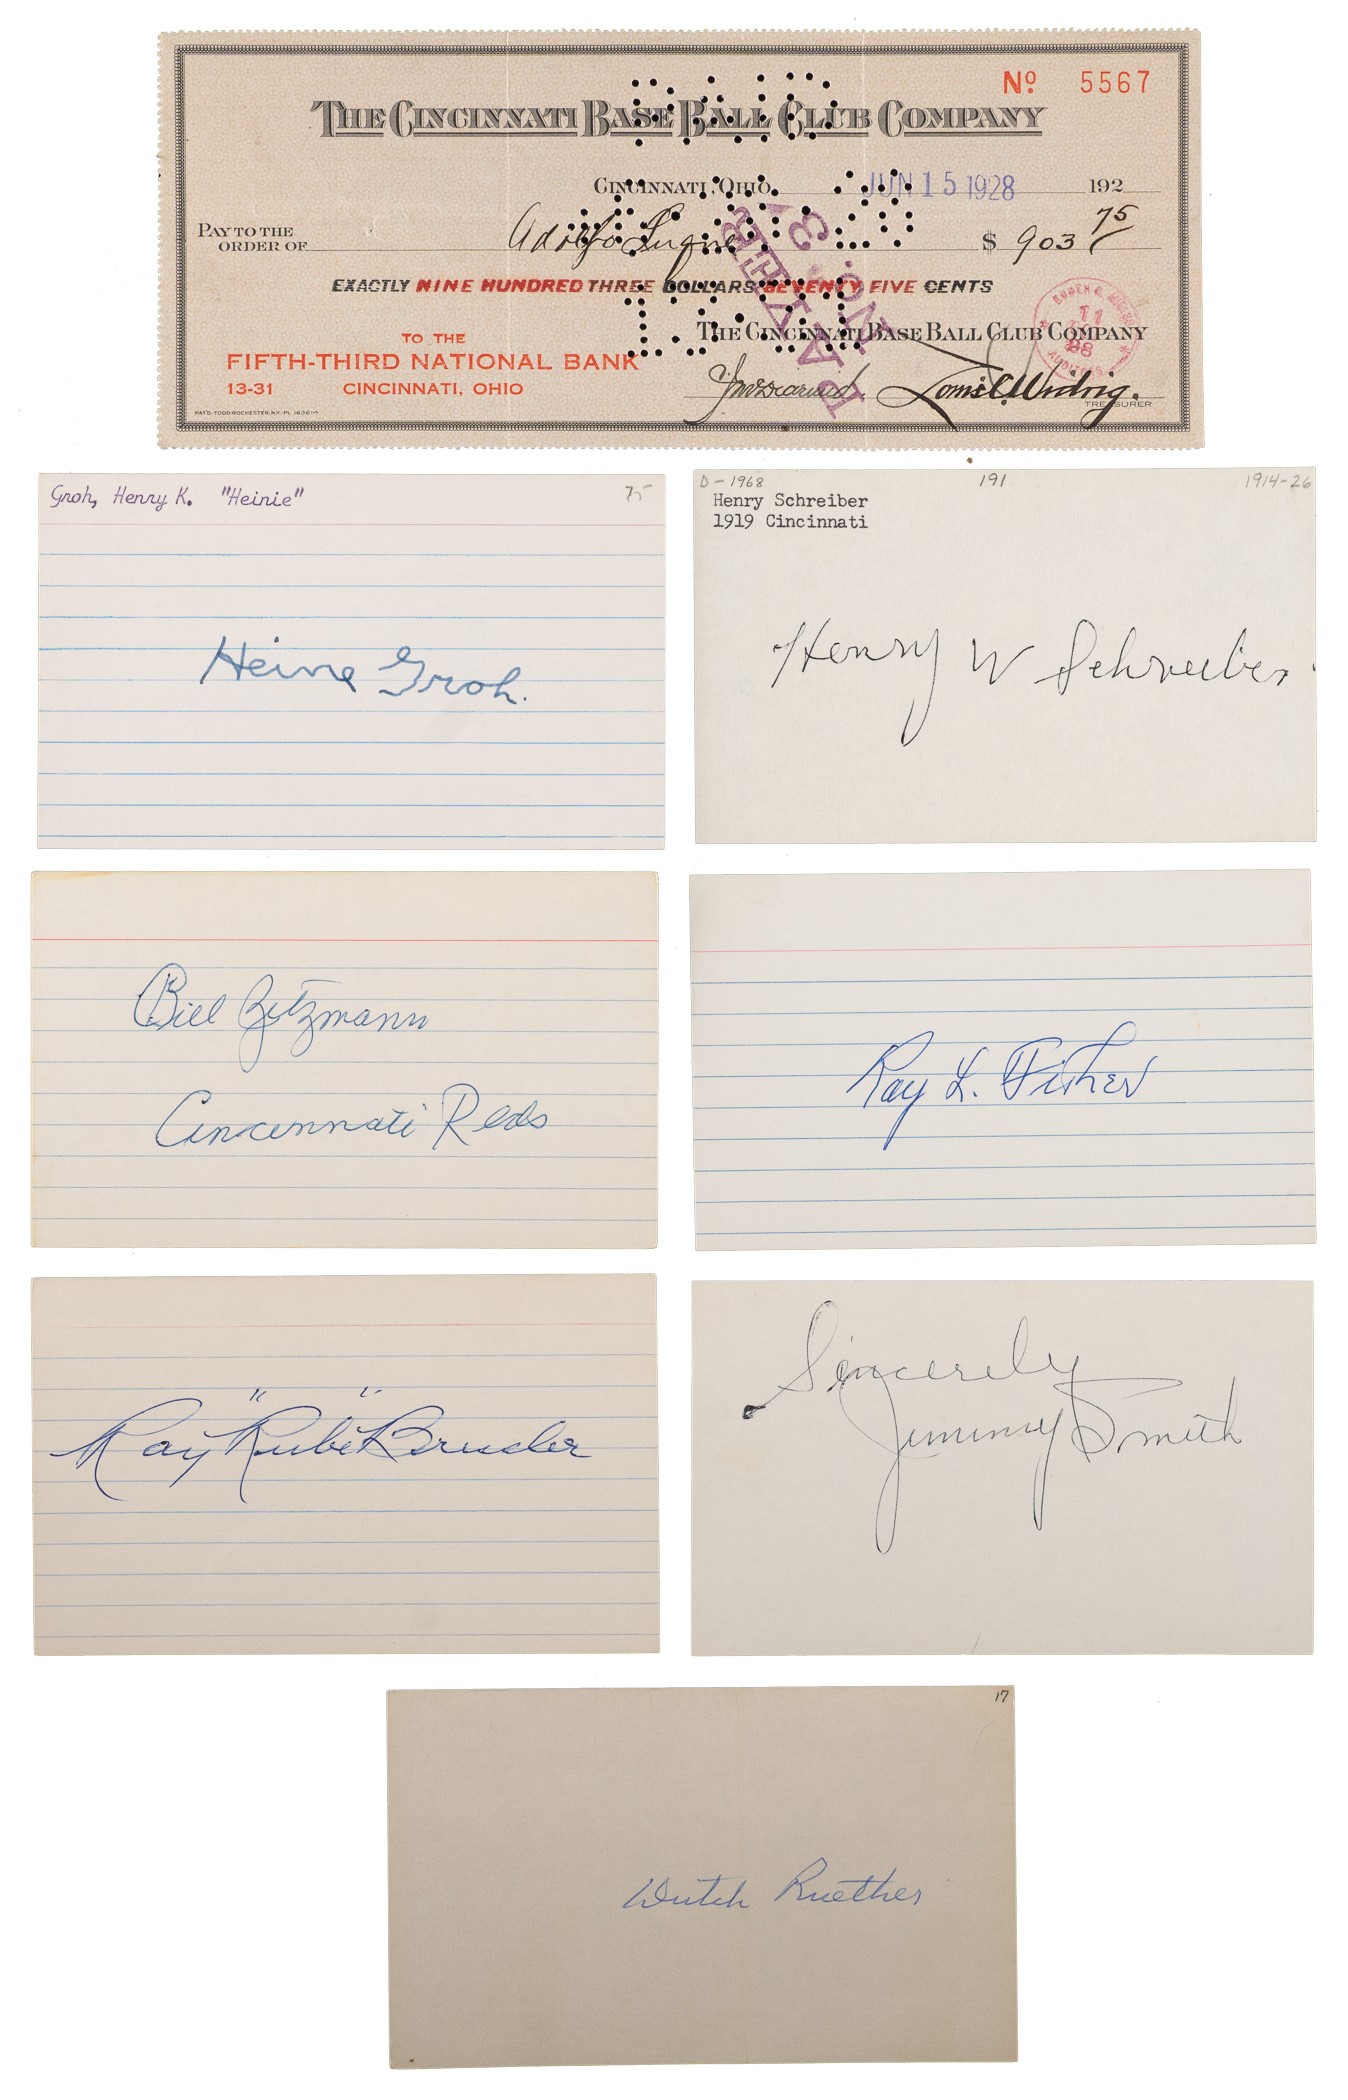 Nº 5567
THE CINCINNATI BASE BALL CLUB COMPANY
CINCINNATI, OHIO, JUN 15 1928 192
PAY TO THE
ORDER OF Adolfo Luque $ 903 75
EXACTLY NINE HUNDRED THREE DOLLARS SEVENTY FIVE CENTS
THE CINCINNATI BASE BALL CLUB COMPANY
TO THE
FIFTH-THIRD NATIONAL BANK
13-31 CINCINNATI, OHIO
Louis C. Widrig.
TREASURER
PAT'D-TODD-ROCHESTER, N.Y.
11
28
AUDITORS
Groh, Henry K. "Heinie" 75
Heine Groh.
D-1968 191 1914-26
Henry Schreiber
1919 Cincinnati
Henry W Schreiber
Bill Zitzmann
Cincinnati Reds
Ray L. Fisher
Ray "Rube" Bressler
Sincerely
Jimmy Smith
17
Dutch Ruether